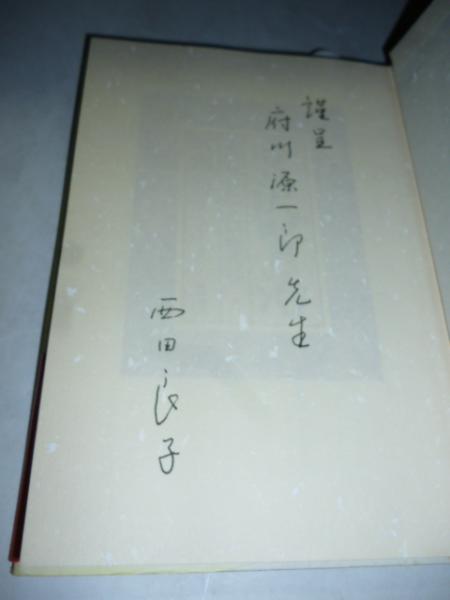 謹呈
府川源一郎先生
西田良子